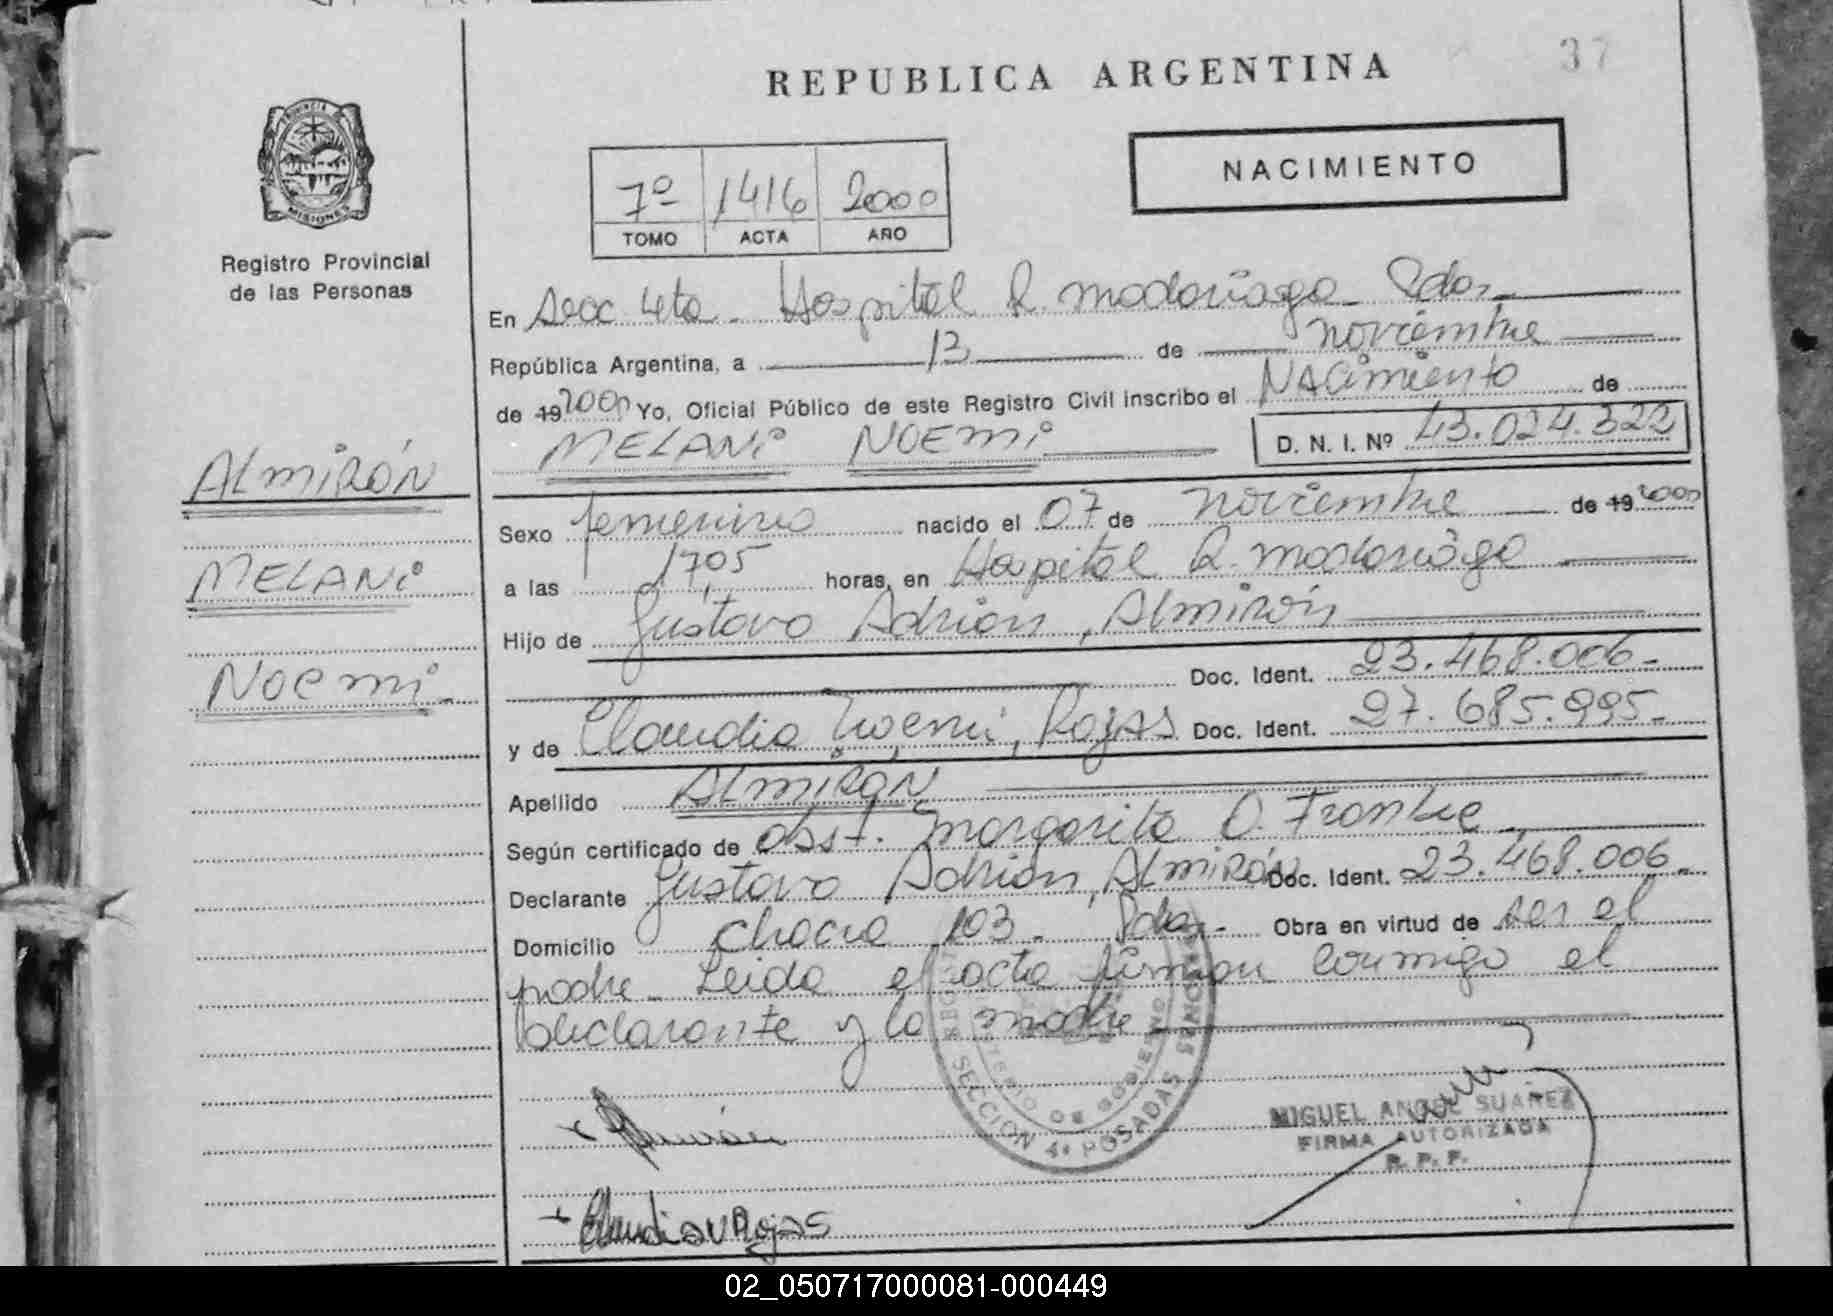 37
REPUBLICA ARGENTINA
NACIMIENTO
7º 1416 2000
TOMO ACTA AÑO
PROVINCIA
MISIONES
Registro Provincial
de las Personas
En Secc 4ta. Hospital R. Madariaga Pdas.
República Argentina, a 13 de noviembre
de 19 2000 Yo, Oficial Público de este Registro Civil inscribo el NACimiento de
MELANi NOEMi D. N. I. Nº 43.024.322
ALMiRÓN
MELANi
NOEMi
Sexo femenino nacido el 07 de noviembre de 19 2000
a las 17,05 horas, en Hospital R. Madariaga
Hijo de Gustavo Adrián, ALmirón
Doc. Ident. 23.468.006.-
y de Claudia Noemi, Rojas Doc. Ident. 27.685.995.-
Apellido ALMiRÓN
Según certificado de obst. Margarita O. Franke
Declarante Gustavo Adrián, ALmiRón Doc. Ident. 23.468.006.-
Domicilio Chacra 103. Pdas.- Obra en virtud de ser el
padre. Leida el acta firman conmigo el
declarante y la madre
SECCION 4ª POSADAS MISIONES
MINISTERIO DE GOBIERNO
MIGUEL ANGEL SUAREZ
FIRMA AUTORIZADA
R. P. P.
Claudia N Rojas
02_050717000081-000449